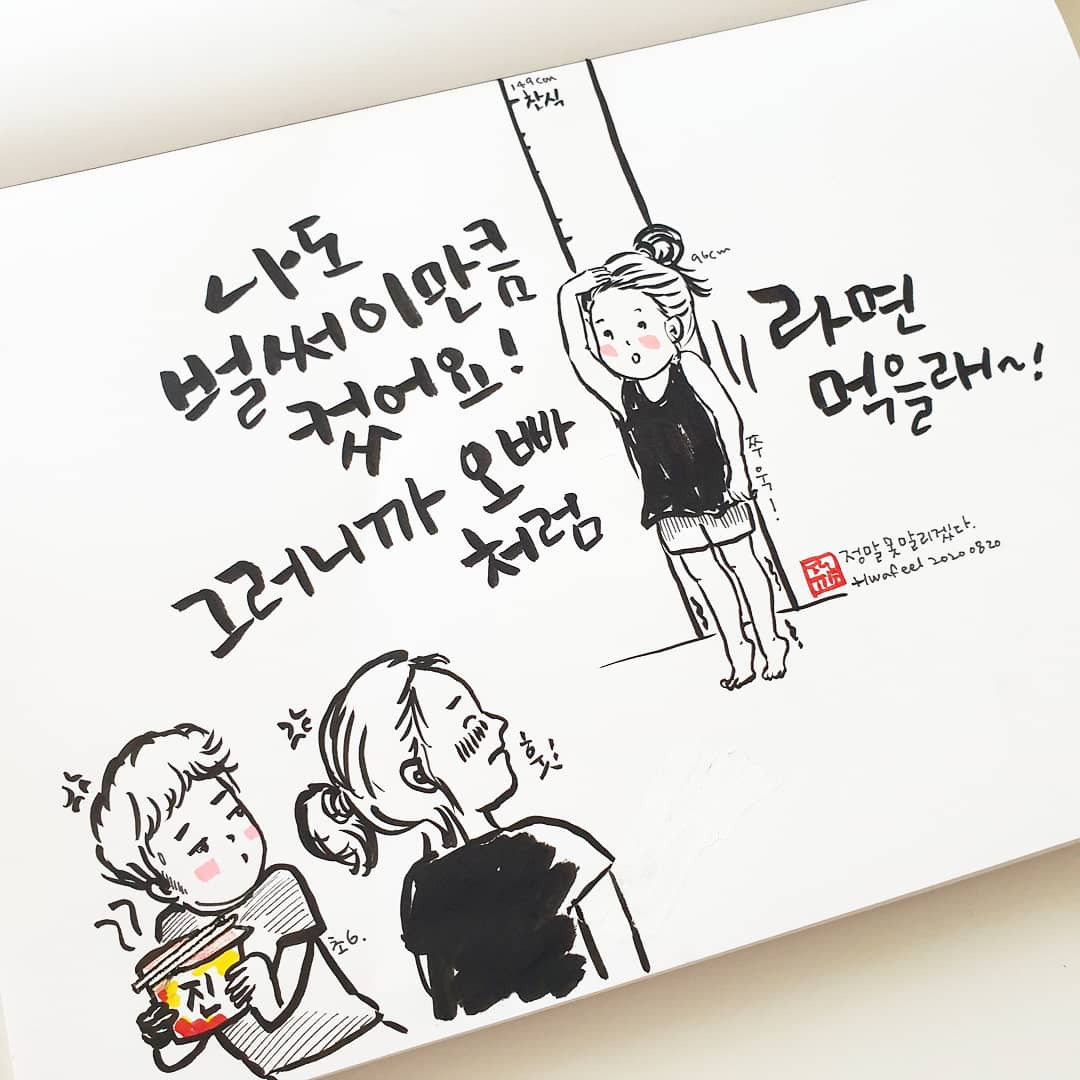 149cm
찬식
나도
벌써 이만큼
컸어요!
그러니까 오빠
처럼
96cm
라면
먹을래~!
쭈욱!
정말 못 말리겠다.
Hwafeel 20200820
흣!
초6.
진